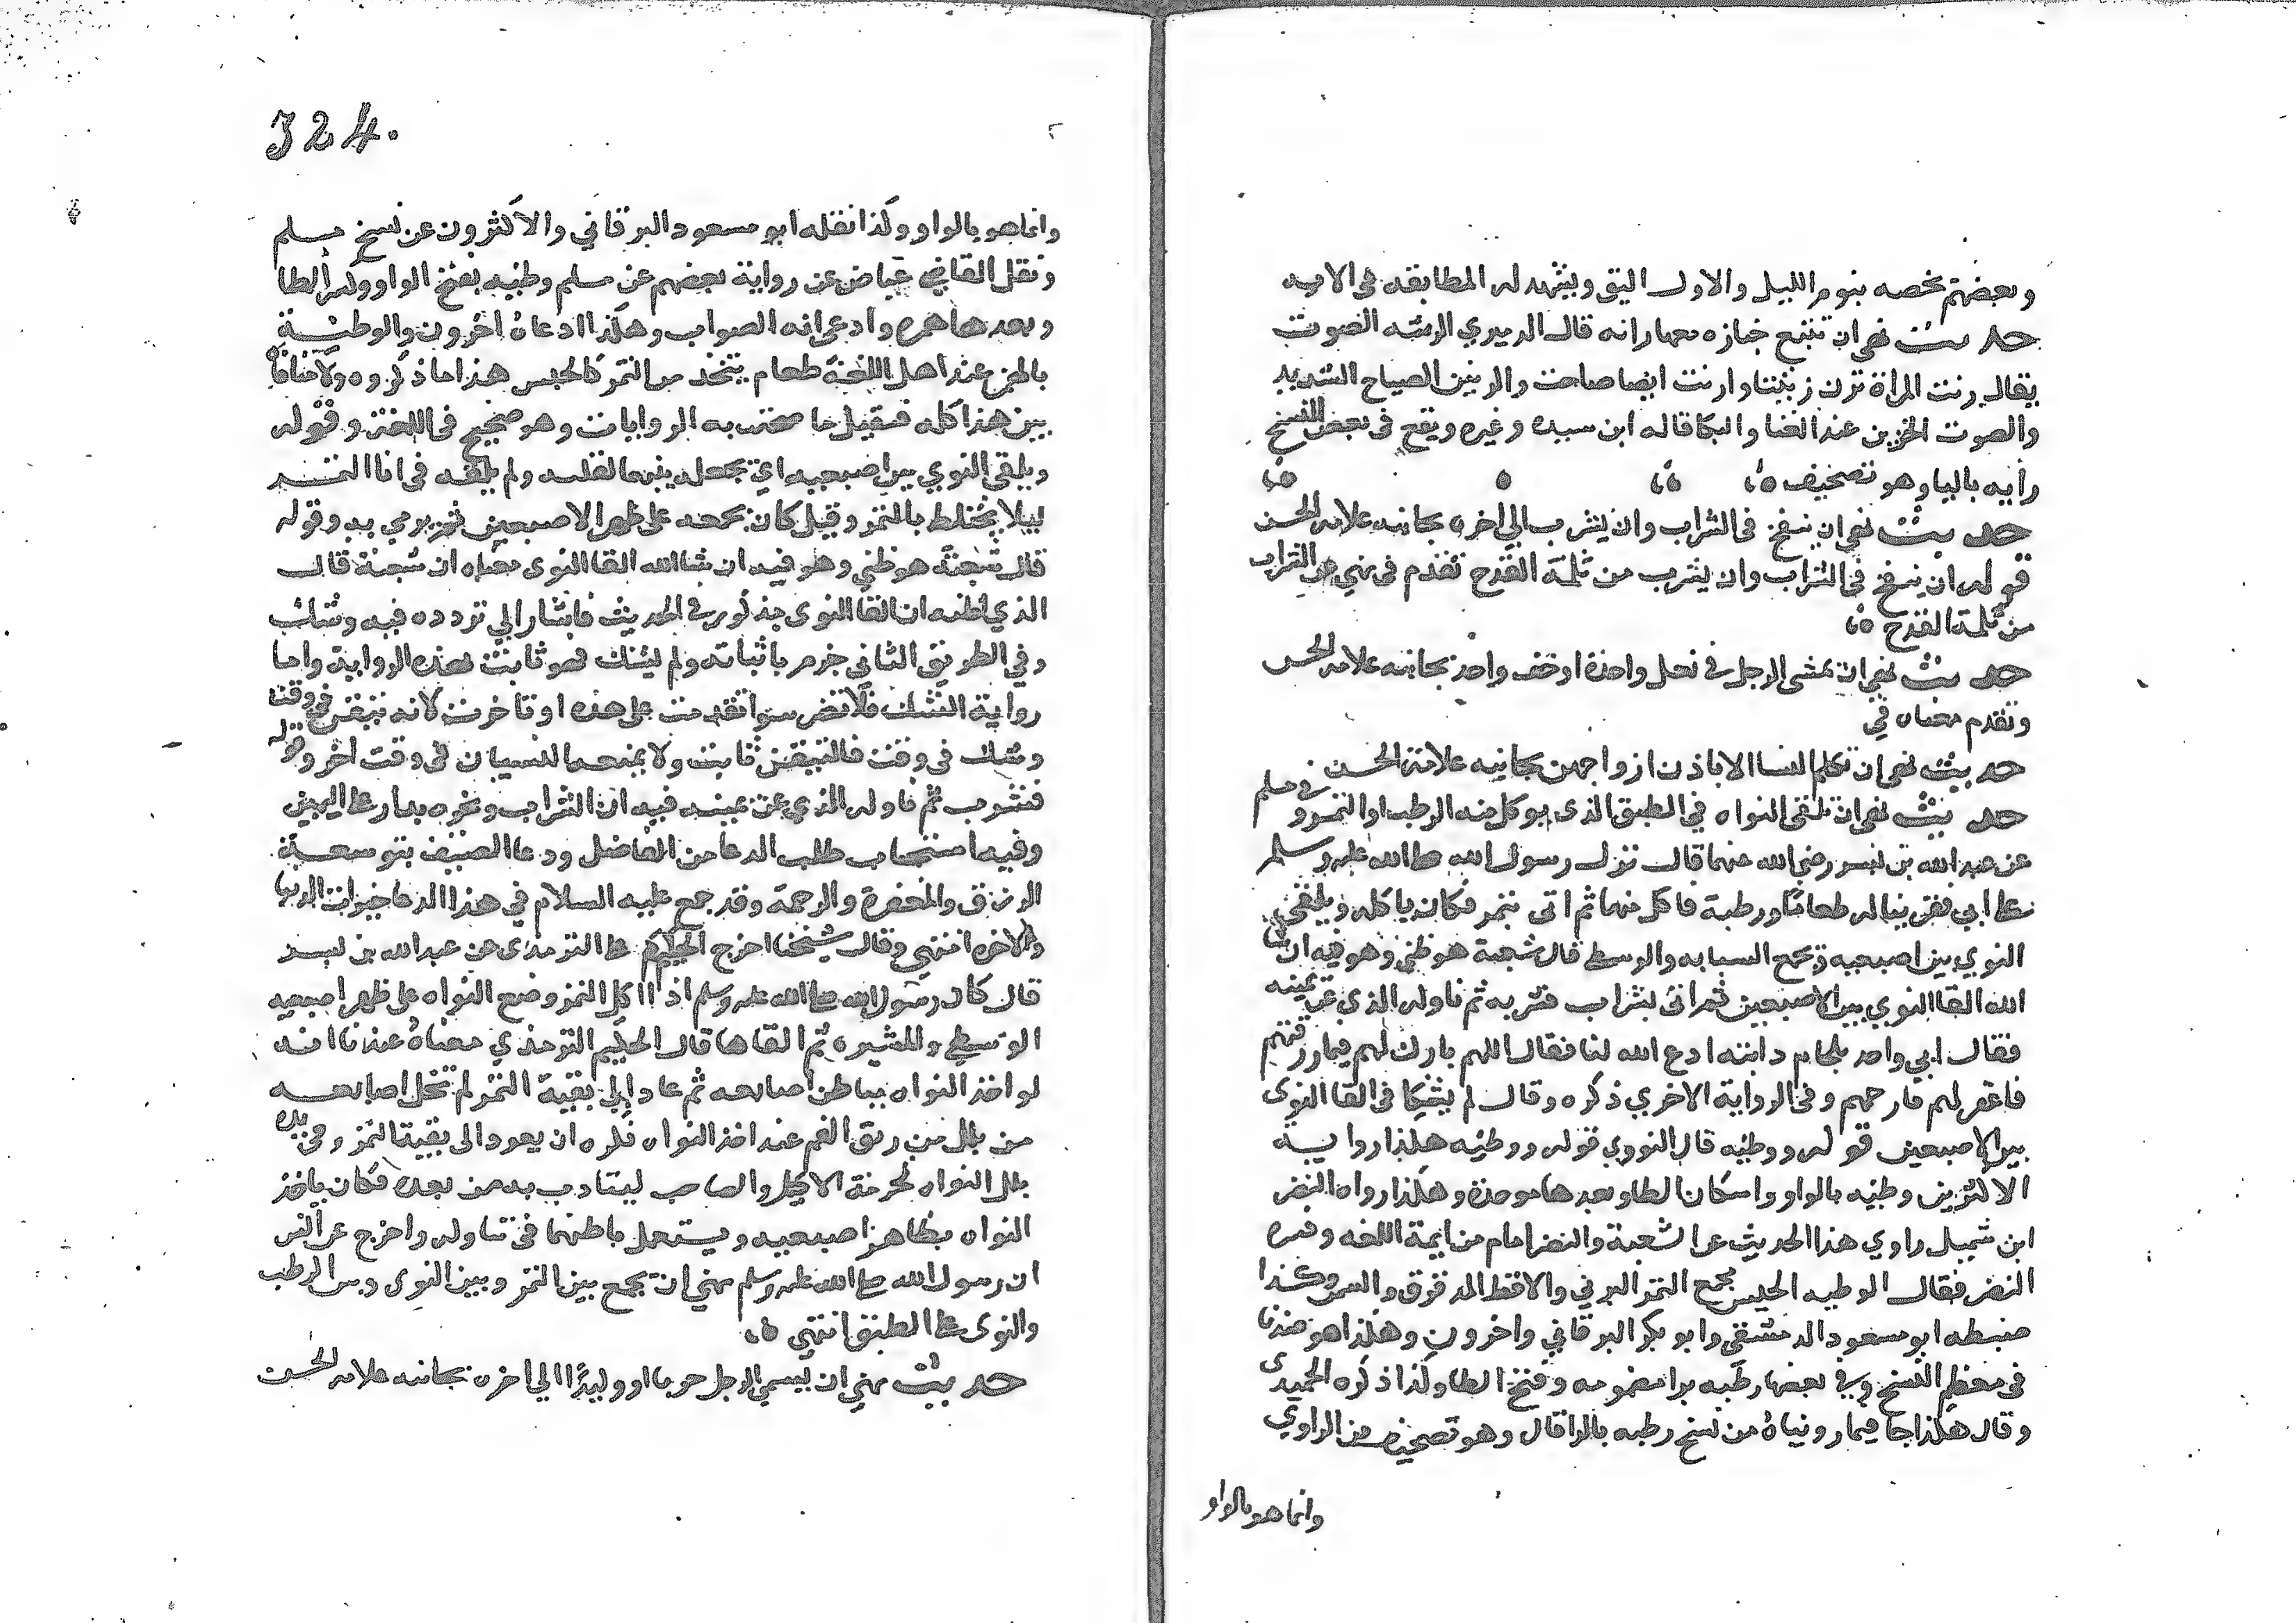 وبعضهم يخصه بنوم الليل والاول اليق ويشهد له المطابقة في الاية
حديث نهى ان تتبع جنازه معها رانه قال الدميري الرنه الصوت
يقال رنت المراة ترن رنينا وارنت ايضا صاحت والرنين الصياح الشديد
والصوت الحزين عند الغنا والبكا قاله ابن سيده وغيره ويقع في بعض النسخ
رايه باليا وهو تصحيف
حديث نهى ان ينفخ في الشراب وان يشرب الى اخره بجانبه علامة الحسن
قوله ان ينفخ في الشراب وان يشرب من ثلمة القدح تقدم في نهى عن الشراب
من ثلمة القدح
حديث نهى ان يمشى الرجل في نعل واحدة او خف واحد بجانبه علامة الحسن
وتقدم معناه في
حديث نهى ان تكلم النسا الا باذن ازواجهن بجانبه علامة الحسن
حديث نهى ان تلقى النواه في الطبق الذى يوكل منه الرطب او التمر و في مسلم
عن عبد الله بن بسر رضي الله عنهما قال نزل رسول الله صلى الله عليه وسلم
على ابي فقربنا له طعاما ورطبة فاكل منها ثم اتى بتمر فكان ياكله ويلقى
النوي بين اصبعيه ويجمع السبابه والوسطى قال شعبة هو ظني وهو فيه ان شا
الله القا النوي بين الاصبعين ثم اتى بشراب فشربه ثم ناوله الذى عن يمينه
فقال ابي واخد بلجام دابته ادع الله لنا فقال اللهم بارك لهم فيما رزقتهم
فاغفر لهم وارحمهم وفي الرواية الاخري ذكره وقال لم يشكا في القا النوى
بين الاصبعين قوله ووطئه قال النووي قوله ووطيه هكذا رواية
الاكثرين وطبه بالواو واسكان الطا وبعدها موحدة وهكذا رواه النضر
ابن شميل راوي هذا الحديث عن شعبة والنضر امام من ايمة اللغه وفسره
النضر فقال الوطبه الحيس يجمع التمر البرني والاقط المدقوق والسمن وكذا
ضبطه ابو مسعود الدمشقي وابو بكر البرقاني واخرون وهكذا هو عندنا
في معظم النسخ وفي بعضها رطبه برا مضمومه وفتح الطا وكذا ذكره الحميدى
وقال هكذا جا فيما رويناه من نسخ رطبه بالرا قال وهو تصحيف من الراوي
وانما هو بالواو
324.
وانما هو بالواو وكذا نقله ابو مسعود البرقاني والاكثرون عن نسخ مسلم
ونقل القاضي عياض عن رواية بعضهم عن مسلم وطئه بفتح الواو وكسر الطا
وبعدها همره وادعى انه الصواب وهكذا ادعاه اخرون والوطئة
بالهمز عند اهل اللغة طعام يتخد من التمر كالحيس هذا ما ذكروه ولا منافاة
بين هذا كله فيقبل ما صحت به الروايات وهو صحيح في اللغة وقوله
ويلقى النوي بين اصبعيه اي يجعله بينهما لقلته ولم يلقه في انا التمر
ليلا يختلط بالتمر وقيل كان يجمعه على ظهر الاصبعين ثم يرمي به وقوله
قال شعبة هو ظني وهو فيه ان شا الله القا النوى معناه ان شعبة قال
الذي اظنه ان القا النوى مذكور في الحديث فاشار الي تردده فيه وشك
وفي الطريق الثاني جزم باثباته ولم يشك فهو ثابت بهذه الرواية واما
رواية الشك فلا تضر سوا تقدمت على هذه او تاخرت لانه تيقن في وقت
وشك في وقت فاليقين ثابت ولا يمنعه النسيان في وقت اخر وقوله
فشرب ثم ناوله الذي عن يمينه فيه ان الشراب ونحوه يدار على اليمين
وفيه استحباب طلب الدعا من الفاضل ودعا الضيف بتوسعة
الرزق والمغفرة والرحمة وقد جمع عليه السلام في هذا الدعا خيرات الدنيا
والاخره انتهي وقال شيخنا اخرج الحكيم الترمذى عن عبد الله بن بسر
قال كان رسول الله صلى الله عليه وسلم اذا اكل التمر وضع النواه على ظهر اصبعيه
الوسطى والمشيره ثم القاها قال الحكيم الترمذي معناه عندنا انه
لو اخذ النواه بباطن اصابعه ثم عاد الى بقية التمر لم تخل اصابعه
من بلل من ريق الفم عند اخذ النواه فكره ان يعود الى بقية التمر وفي يده
بلل النواه لحرمة الاكيل والصاحب ليتادب به من بعده فكان ياخذ
النواه بظاهر اصبعيه ويستعمل باطنهما في تناوله واخرج عن انس
ان رسول الله صلى الله عليه وسلم نهي ان يجمع بين التمر وبين النوى وبين الرطب
والنوى على الطبق انتهي
حديث نهي ان يسمي الرجل حربا او وليدا الي اخره بجانبه علامة الحسن